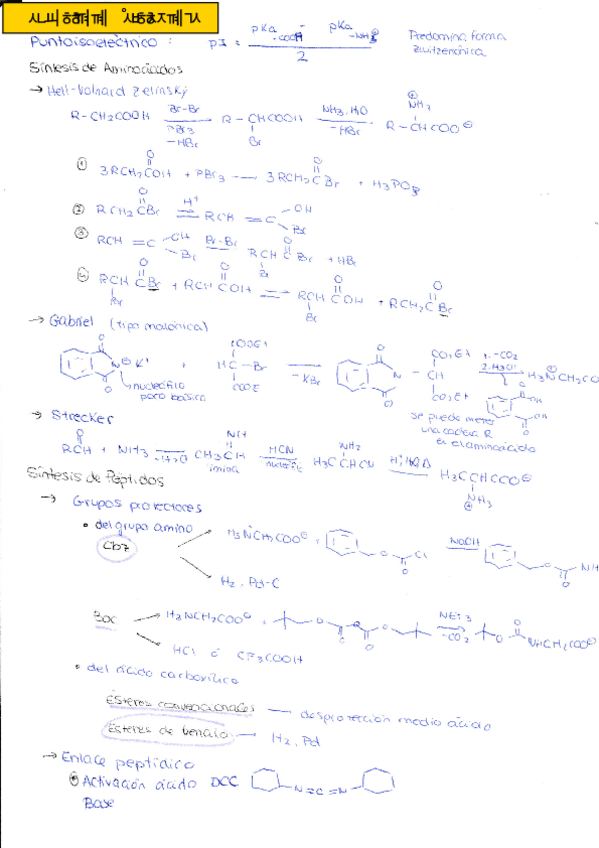 Punto isoeléctrico : pI = pKa -COOH pKa -NH3 / 2 Predomina forma
Zwitteriónica
Síntesis de Aminoácidos
→ Hell-Volhard Zelinsky
R-CH2COOH Br-Br PBr3 -HBr R-CHCOOH Br NH3, H2O -HBr R-CHCOO⊖ NH3 ⊕
① 3RCH2COH O + PBr3 → 3RCH2CBr O + H3PO3
② RCH2CBr O H+ ⇌ RCH=C OH Br
③ RCH=C OH Br Br-Br RCHCBr O Br + HBr
④ RCHCBr O Br + RCHCOH O ⇌ RCHCOH O Br + RCH2CBr O
→ Gabriel (tipo malónica)
O N⊖ K+ O + COOEt HC-Br COOE -KBr O N-CH O CO2Et CO2Et 1. -CO2 2. H3O+ H3NCH2CO
nucleófilo
poco básico
se puede meter
una cadena R
en el aminoácido
→ Strecker
RCH O + NH3 -H2O CH3CH NH HCN H3CCHCN NH2 H+, H2O Δ H3CCHCOO⊖ NH3 ⊕
imina nucleófilo
Síntesis de Péptidos
→ Grupos protectores
• del grupo amino
Cbz H3NCH2COO⊖ + O Cl O NaOH O NH O
H2, Pd-C
BOC H2NCH2COO⊖ + O O O O O NEt3 -CO2 O O NHCH2COO⊖
HCl ó CF3COOH
• del ácido carboxílico
Ésteres convencionales — desprotección medio ácido
Ésteres de bencilo → H2, Pd
→ Enlace peptídico
Activación ácido DCC N=C=N
Base